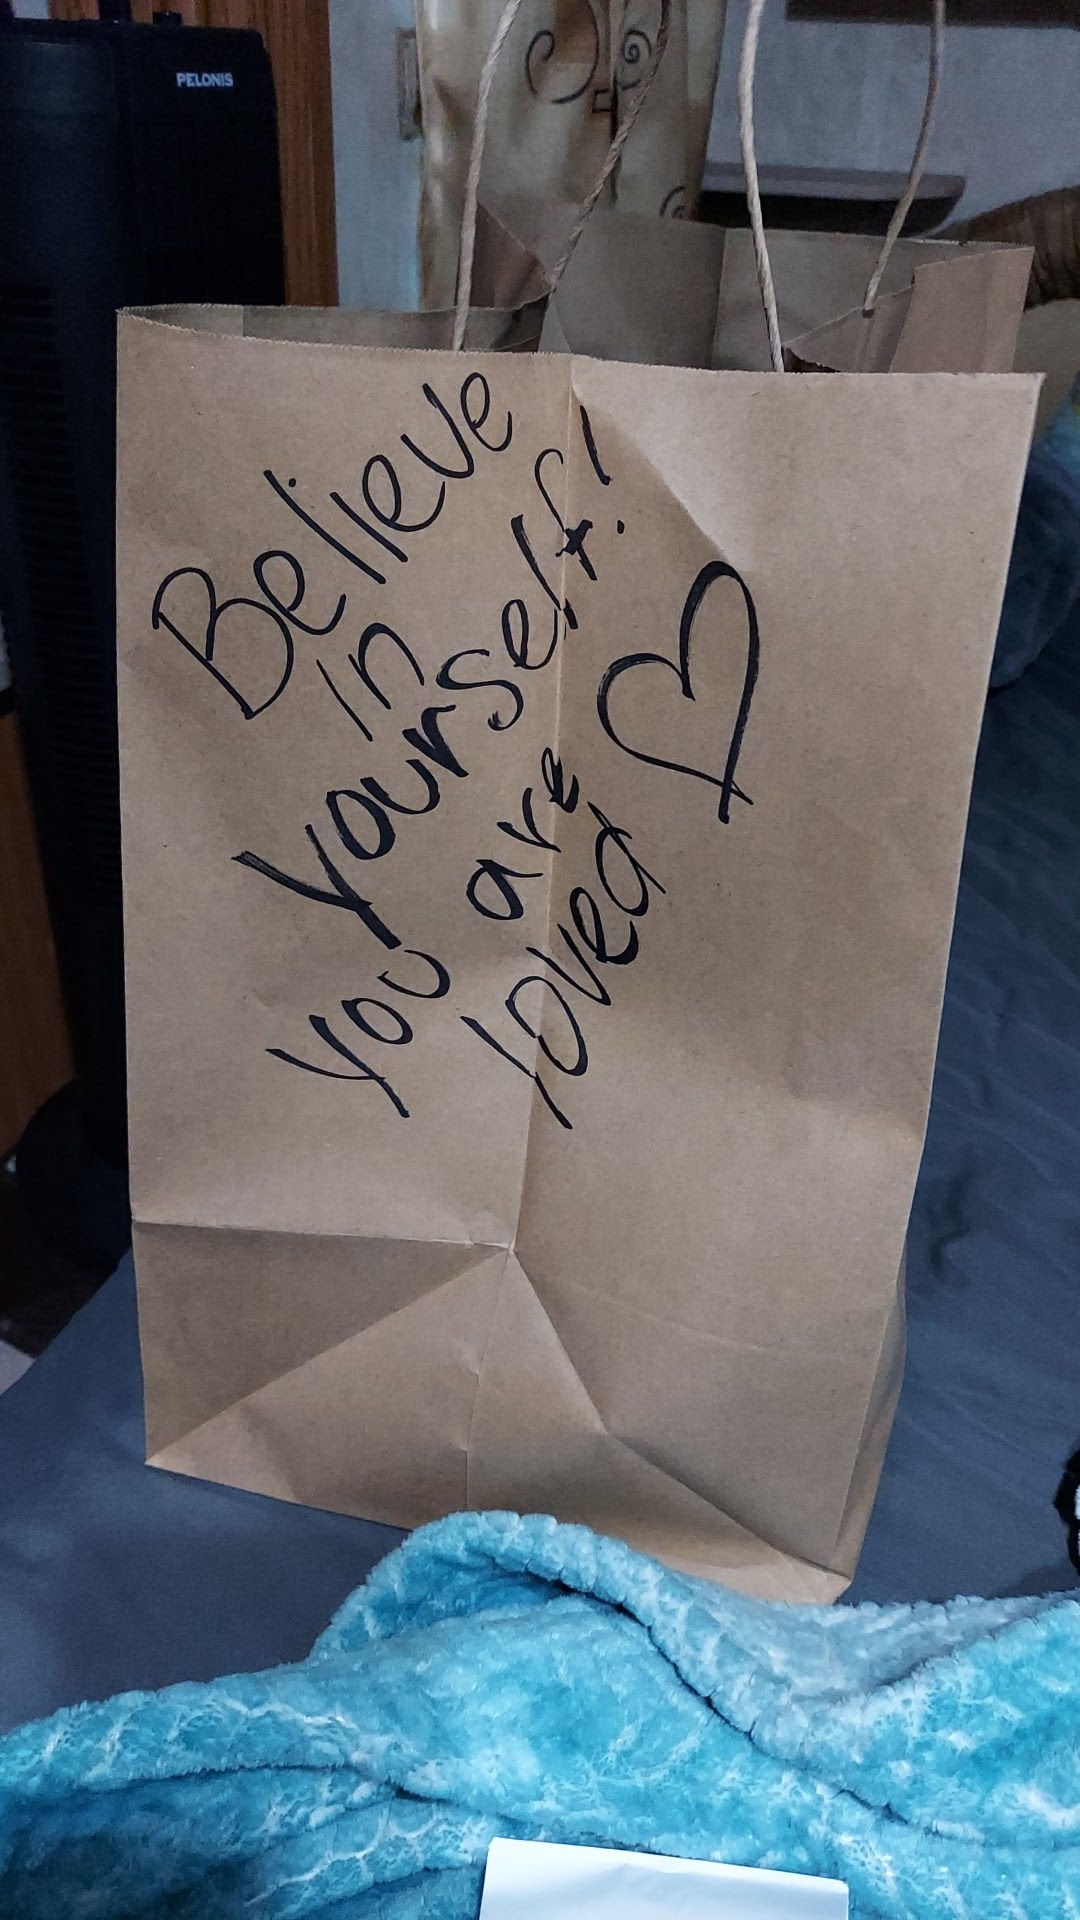 PELONIS
Believe
in
yourself!
you are
loved